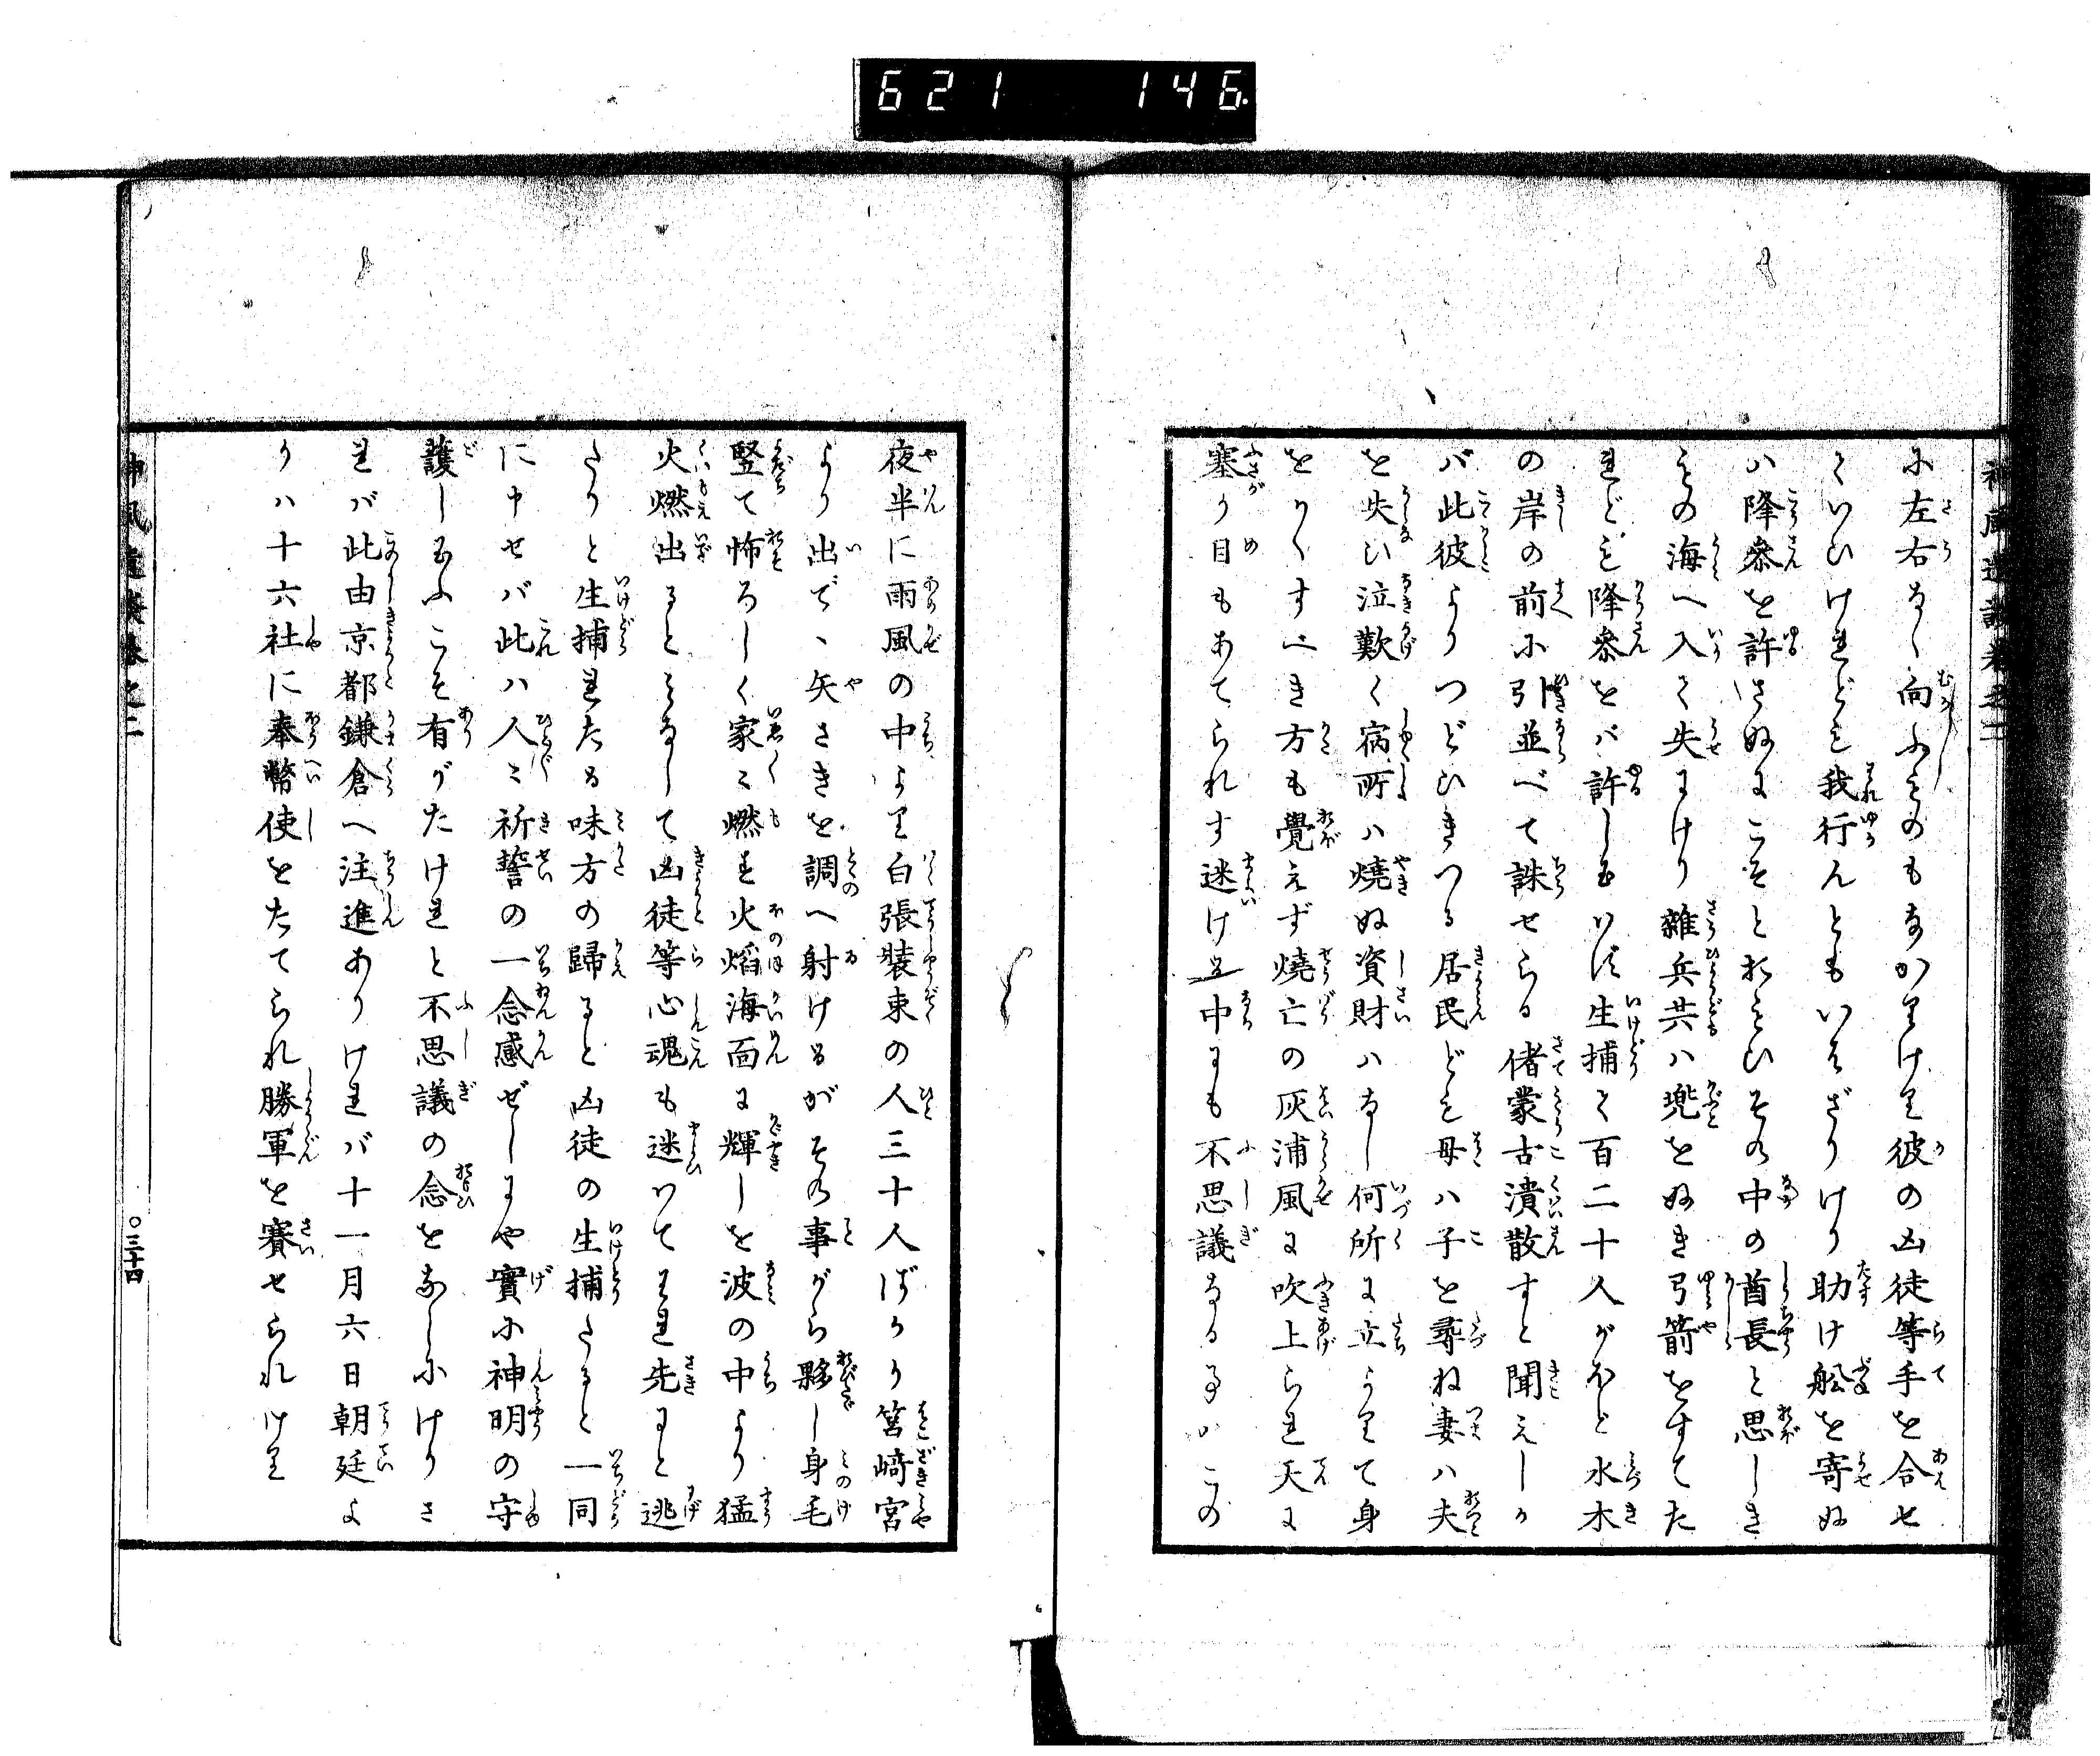 621 146
に左右なく向ふものもなかりけり彼の凶徒等手を合せ
ていひけれども我行んともいはざりけり助け舩を寄ぬ
ハ降参を許さぬにこそとおもひその中の酋長と思しき
もの海へ入て失にけり雜兵共ハ兜をぬき弓箭をすてた
れども降参をバ許しもいはず生捕て百二十人がほと水木
の岸の前に引並べて誅せらる偖蒙古潰散すと聞えしか
バ此彼よりつどひきつる居民ども母ハ子を尋ね妻ハ夫
を失ひ泣歎く病所ハ燒ぬ資財ハなし何所に立よりて身
をかくすべき方も覺えず燒亡の灰浦風に吹上られ天に
塞り目もあてられす迷けり中にも不思議なる事ハこの
夜半に雨風の中より白張裝束の人三十人ばかり筥﨑宮
より出で丶矢さきを調へ射けるがその事がら夥し身毛
竪て怖ろしく家〻燃る火焰海面に輝しを波の中より猛
火燃出るとみなして凶徒等心魂も迷いてわれ先にと逃
たりと生捕れたる味方の歸ると凶徒の生捕たると一同
に申せバ此ハ人〻祈誓の一念感ぜしにや實に神明の守
護し玉ふこそ有がたけれと不思議の念をなしにけりさ
れバ此由京都鎌倉へ注進ありけれバ十一月六日朝廷よ
りハ十六社に奉幣使をたてられ勝軍を賽せられけり
〇三十四